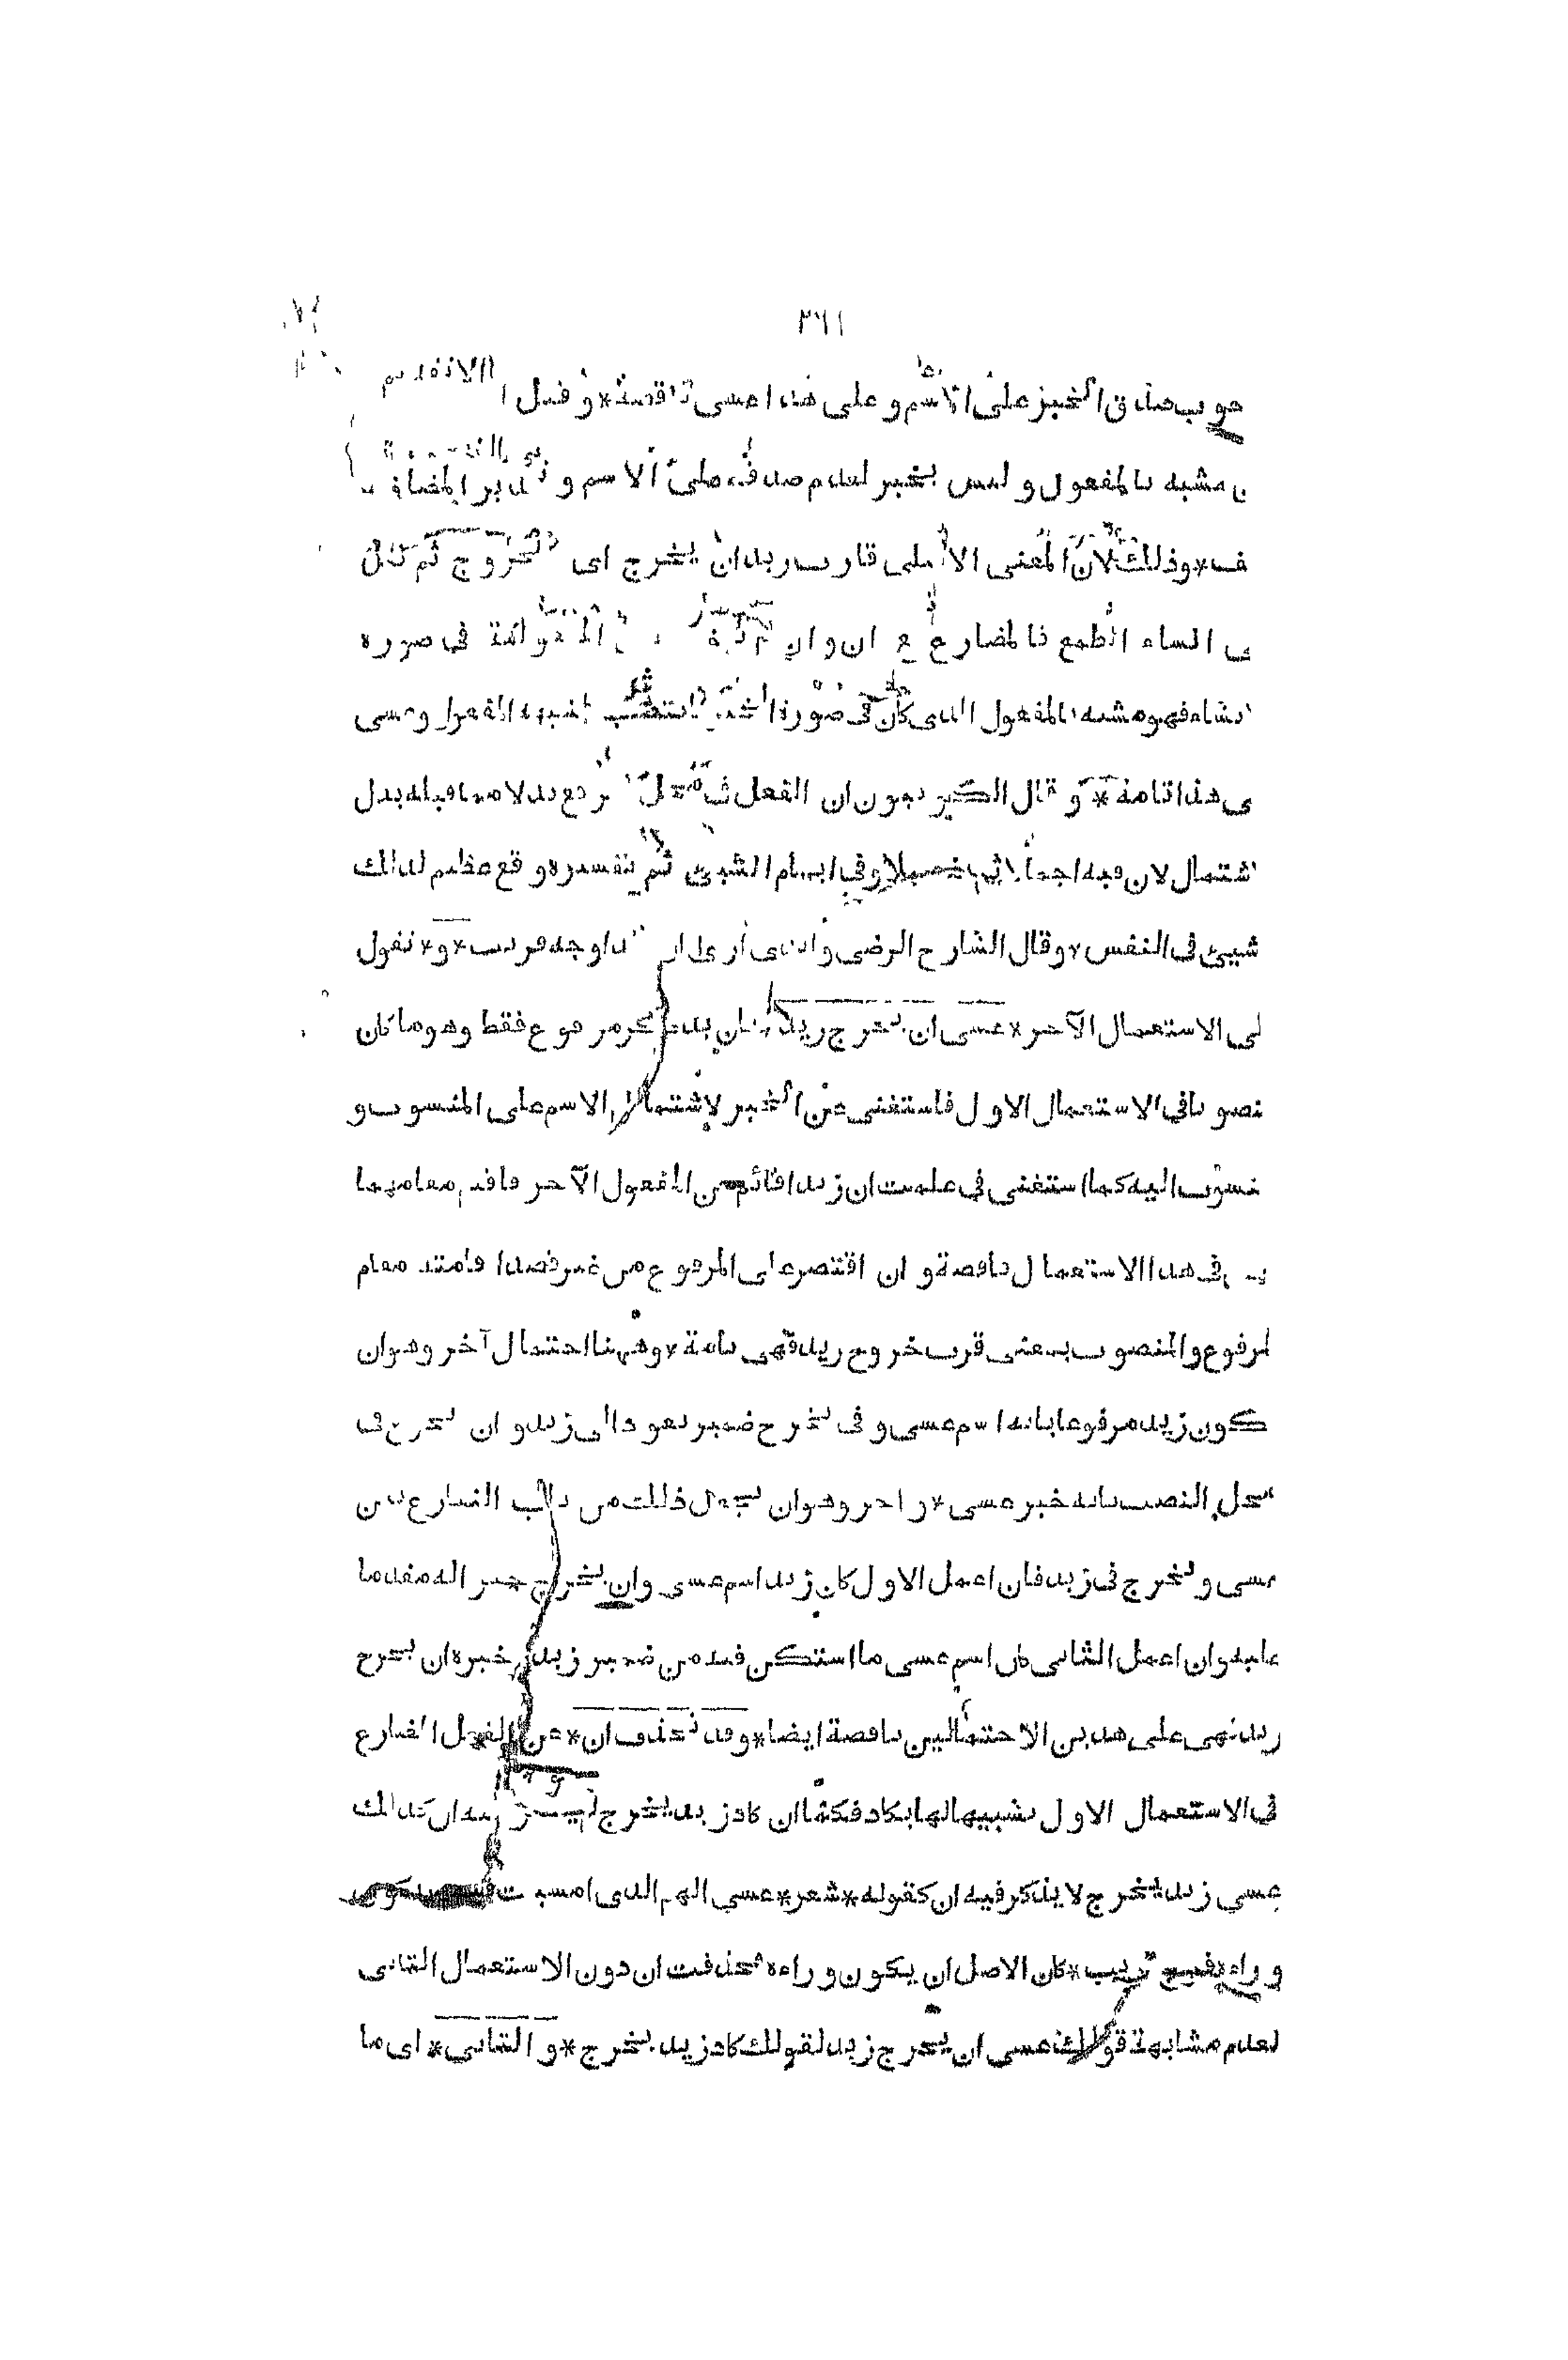 ٣٦١
جوب صدق الخبر على الاسم وعلى هذا عسى ناقصة * وقيل ا
ن مشبه بالمفعول وليس بخبر لعدم صدقه على الاسم و تقدير المضاف
ف * وذلك لان المعنى الاصلى قارب زيد ان يخرج اى الخروج ثم
ى انشاء الطمع فالمضارع مع ان وان فى صوره
انشاء فهو مشبه بالمفعول الذى كان فى صورة الخبر فانتصب لشبهه بالمفعول وعسى
ى هذا تامة * و قال الكوفيون ان الفعل فى محل الرفع بدلا مما قبله بدل
اشتمال لان فيه اجمالا ثم تفصيلا وفى ابهام الشيئ ثم تفسيره وقع عظيم لذالك
شيئ فى النفس * وقال الشارح الرضى والذى ارى ان هذا وجه قريب * و * تقول
لى الاستعمال الآخر * عسى ان يخرج زيد * بان يذكر مرفوع فقط وهو ما كان
نصوبا فى الاستعمال الاول فاستغنى عن الخبر لاشتمال الاسم على المنسوب و
نسوب اليه كما استغنى فى علمت ان زيدا قائم عن المفعول الآخر فاقيم مقامهما
فى هذا الاستعمال ناقصة و ان اقتصر على المرفوع من غير قصد اقامته مقام
لمرفوع والمنصوب بمعنى قرب خروج زيد فهى تامة * وههنا احتمال آخر وهو ان
كون زيد مرفوعا بانه اسم عسى و فى يخرج ضمير يعود الى زيد و ان يخرج فى
محل النصب بانه خبر عسى * و آخر وهو ان يجعل ذلك من باب التنازع بين
عسى و يخرج فى زيد فان اعمل الاول كان زيد اسم عسى وان يخرج خبر اله مقدما
عليه وان اعمل الثانى كان اسم عسى ما استكن فيه من ضمير زيد و خبره ان يخرج
زيد فهى على هذين الاحتمالين ناقصة ايضا * وقد تحذف ان * عن الفعل المضارع
فى الاستعمال الاول تشبيها لها بكاد فكما ان كاد زيد يخرج ان كذالك
عسى زيد يخرج لا يذكر فيه ان كقوله * شعر * عسى الهم الذى امسيت فيه يكون
وراءه فرج قريب * كان الاصل ان يكون وراءه فحذفت ان دون الاستعمال الثانى
لعدم مشابهة قولك عسى ان يخرج زيد لقولك كاد زيد يخرج * و الثانى * اى ما